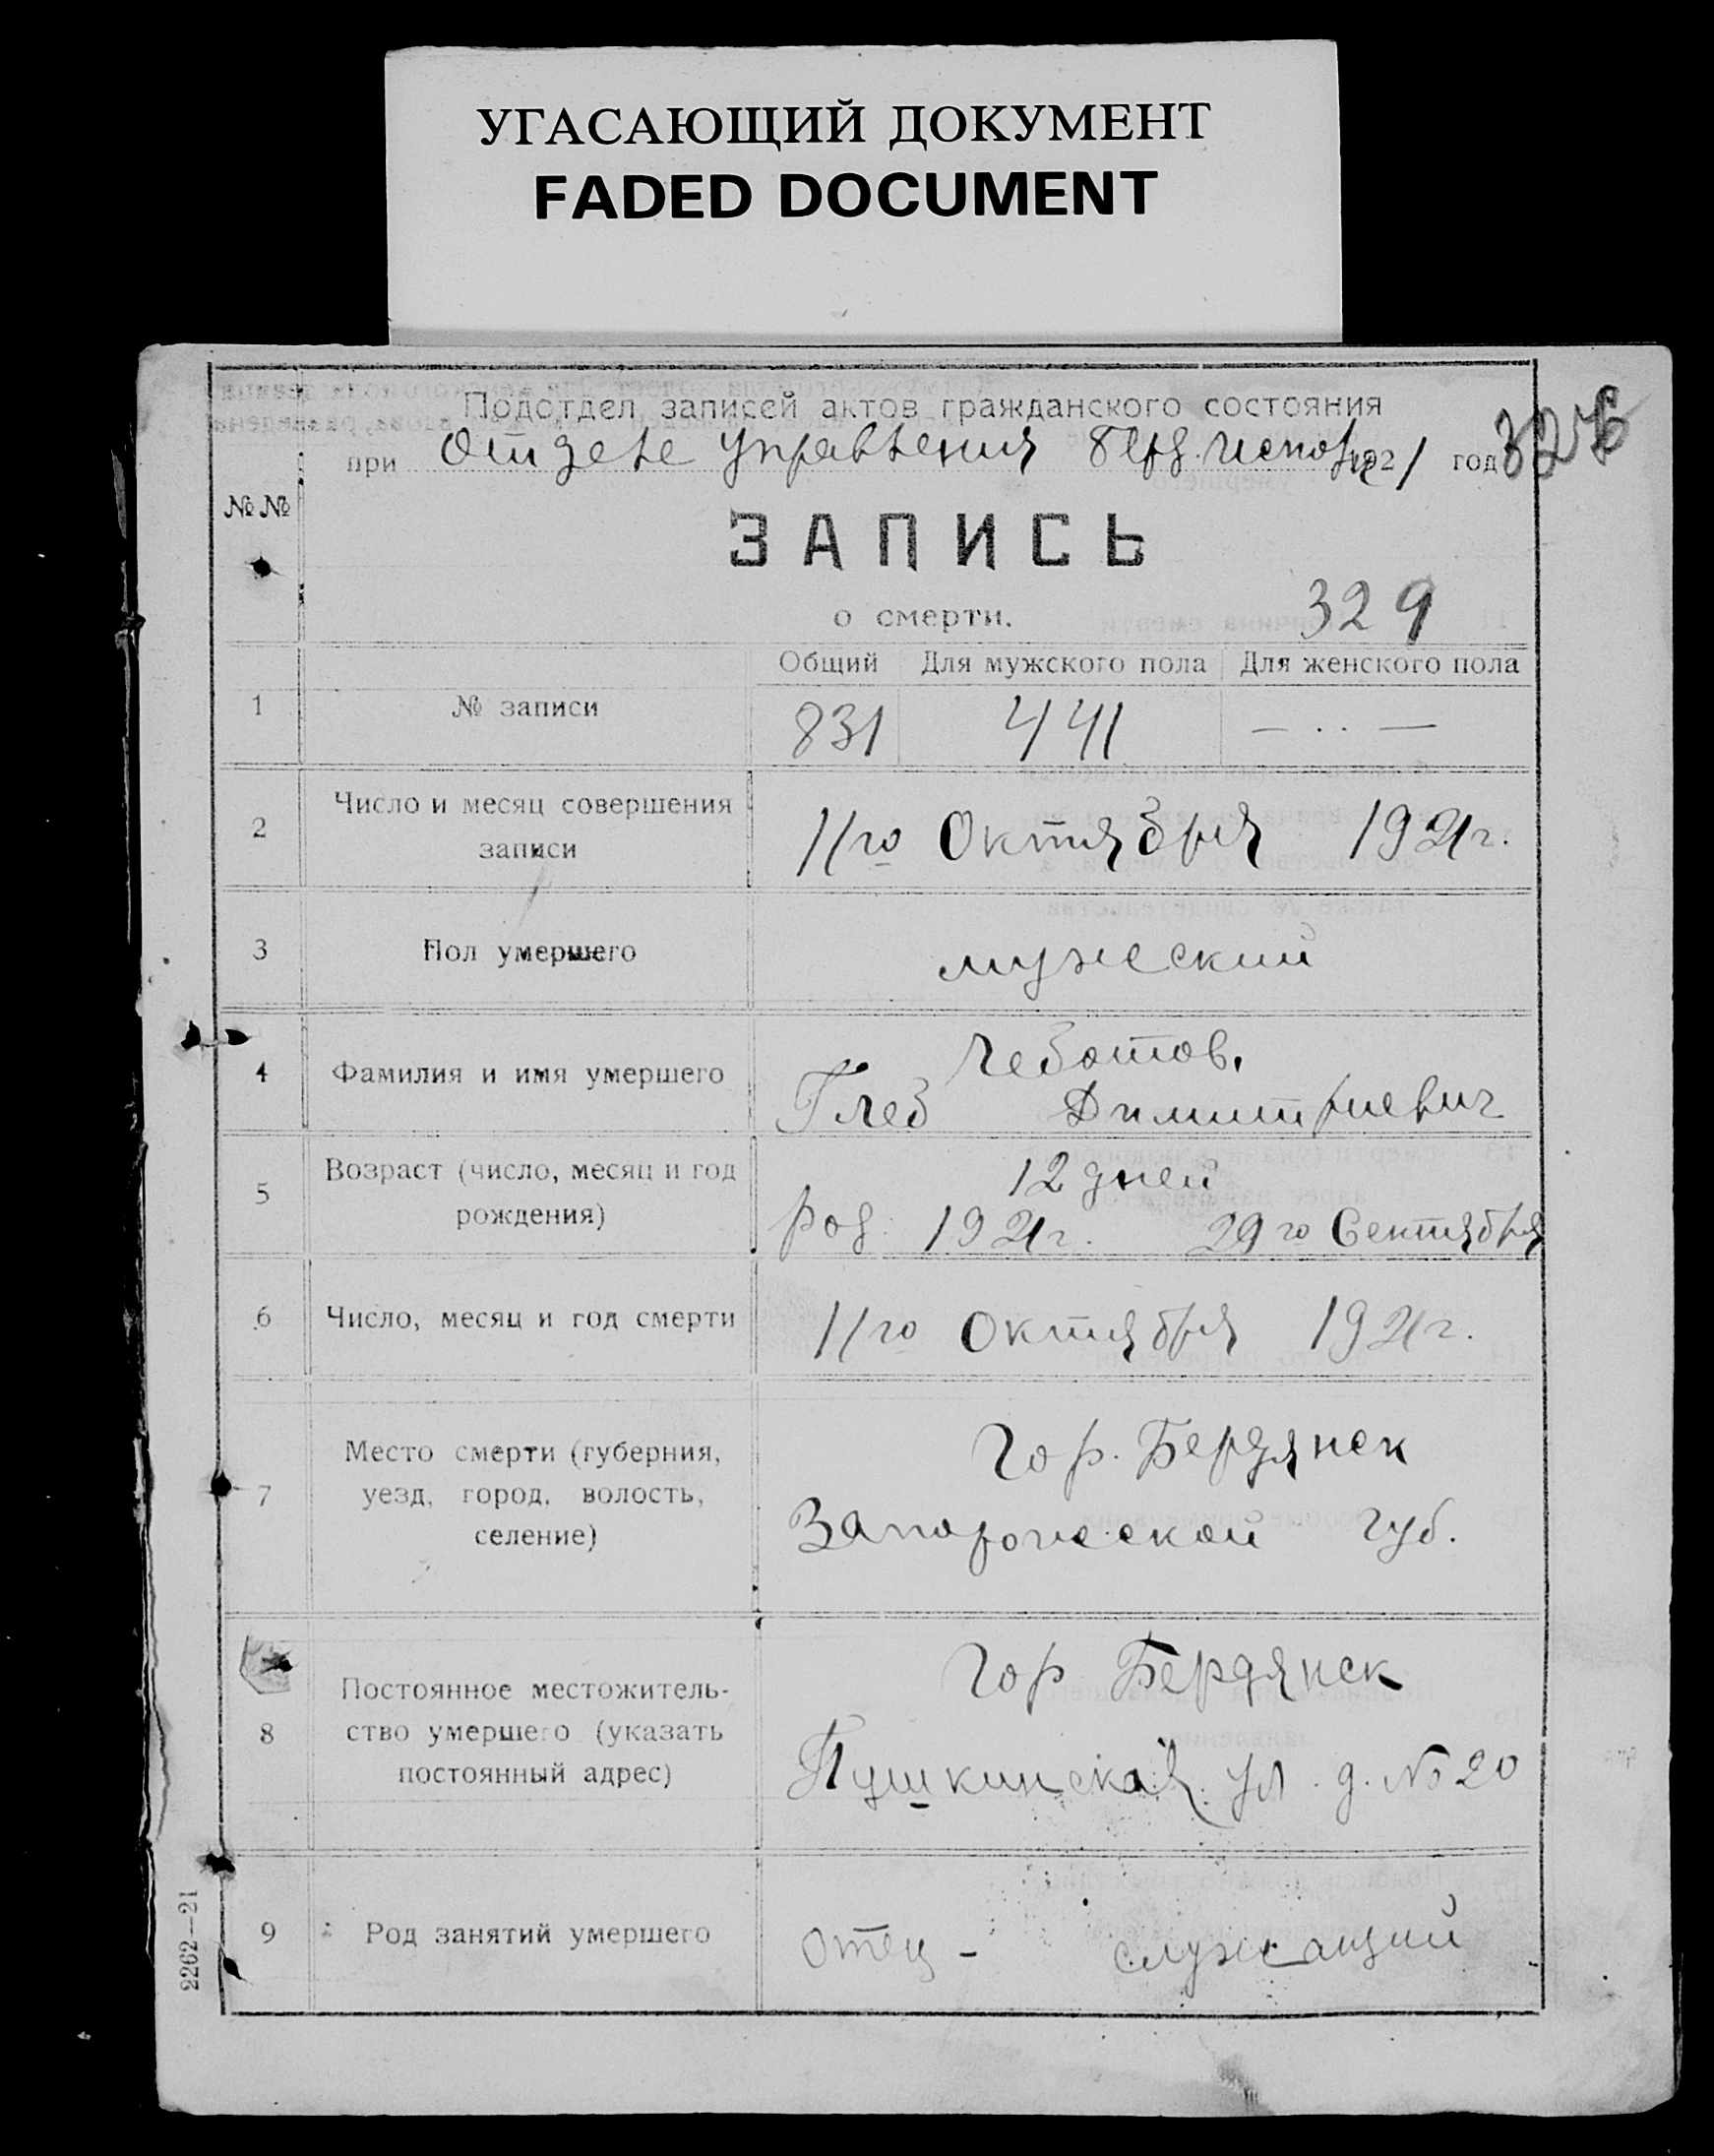 УГАСАЮЩИЙ ДОКУМЕНТ
FADED DOCUMENT
Подотдел записей актов гражданского состояния
при Отделе Управления Берд. Исполк 1921 год
№№
ЗАПИСЬ
о смерти. 329
Общий Для мужского пола Для женского пола
1 № записи 831 441 — ·· —
2 Число и месяц совершения
записи 11го Октября 1921г.
3 Пол умершего мужеский
4 Фамилия и имя умершего Чеботов.
Глеб Димитриевич
5 Возраст (число, месяц и год
рождения) 12 дней
род. 1921г. 29го Сентября
6 Число, месяц и год смерти 11го Октября 1921г.
7 Место смерти (губерния,
уезд, город, волость,
селение) Гор. Бердянск
Запорожской губ.
8 Постоянное местожитель-
ство умершего (указать
постоянный адрес) Гор Бердянск
Пушкинская ул. д. № 20
9 Род занятий умершего отец - служащий
2262—21